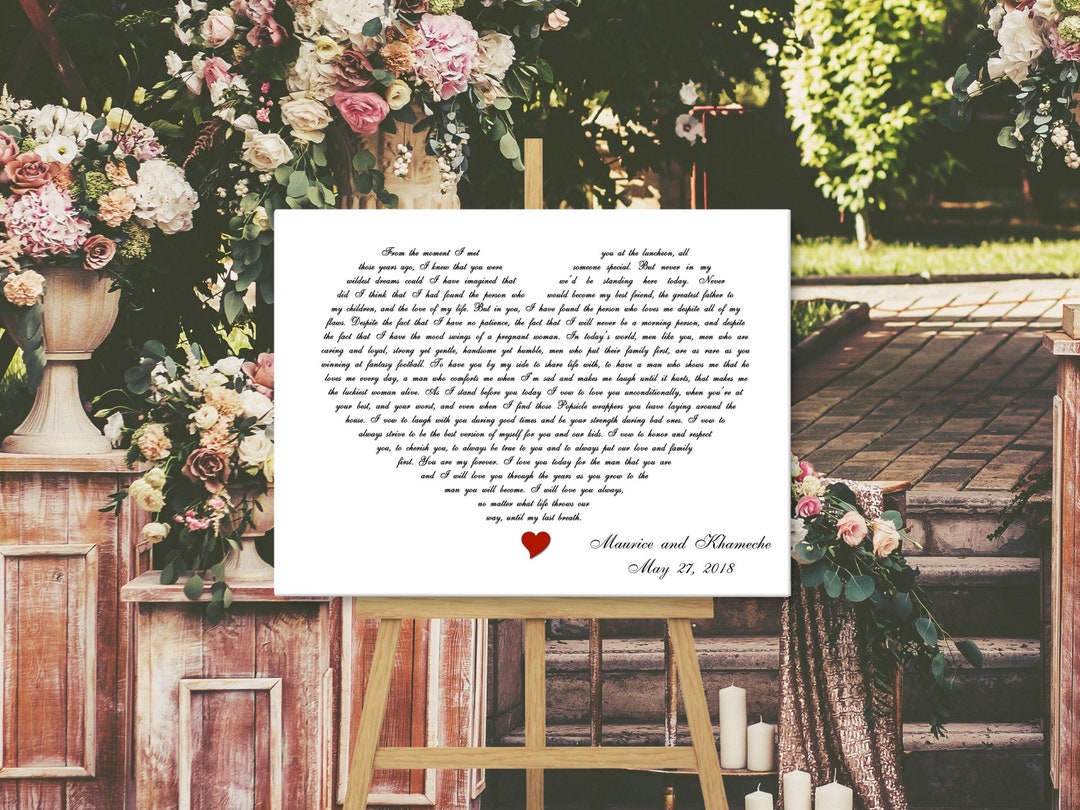 From the moment I met you at the luncheon, all
those years ago, I knew that you were someone special. But never in my
wildest dreams could I have imagined that we'd be standing here today. Never
did I think that I had found the person who would become my best friend, the greatest father to
my children, and the love of my life. But in you, I have found the person who loves me despite all of my
flaws. Despite the fact that I have no patience, the fact that I will never be a morning person, and despite
the fact that I have the mood swings of a pregnant woman. In today's world, men like you, men who are
caring and loyal, strong yet gentle, handsome yet humble, men who put their family first, are as rare as you
winning at fantasy football. To have you by my side to share life with, to have a man who shows me that he
loves me every day, a man who comforts me when I'm sad and makes me laugh until it hurts, that makes me
the luckiest woman alive. As I stand before you today I vow to love you unconditionally, when you're at
your best, and your worst, and even when I find those Popsicle wrappers you leave laying around the
house. I vow to laugh with you during good times and be your strength during bad ones. I vow to
always strive to be the best version of myself for you and our kids. I vow to honor and respect
you, to cherish you, to always be true to you and to always put our love and family
first. You are my forever. I love you today for the man that you are
and I will love you through the years as you grow to the
man you will become. I will love you always,
no matter what life throws our
way, until my last breath.
Maurice and Khameche
May 27, 2018